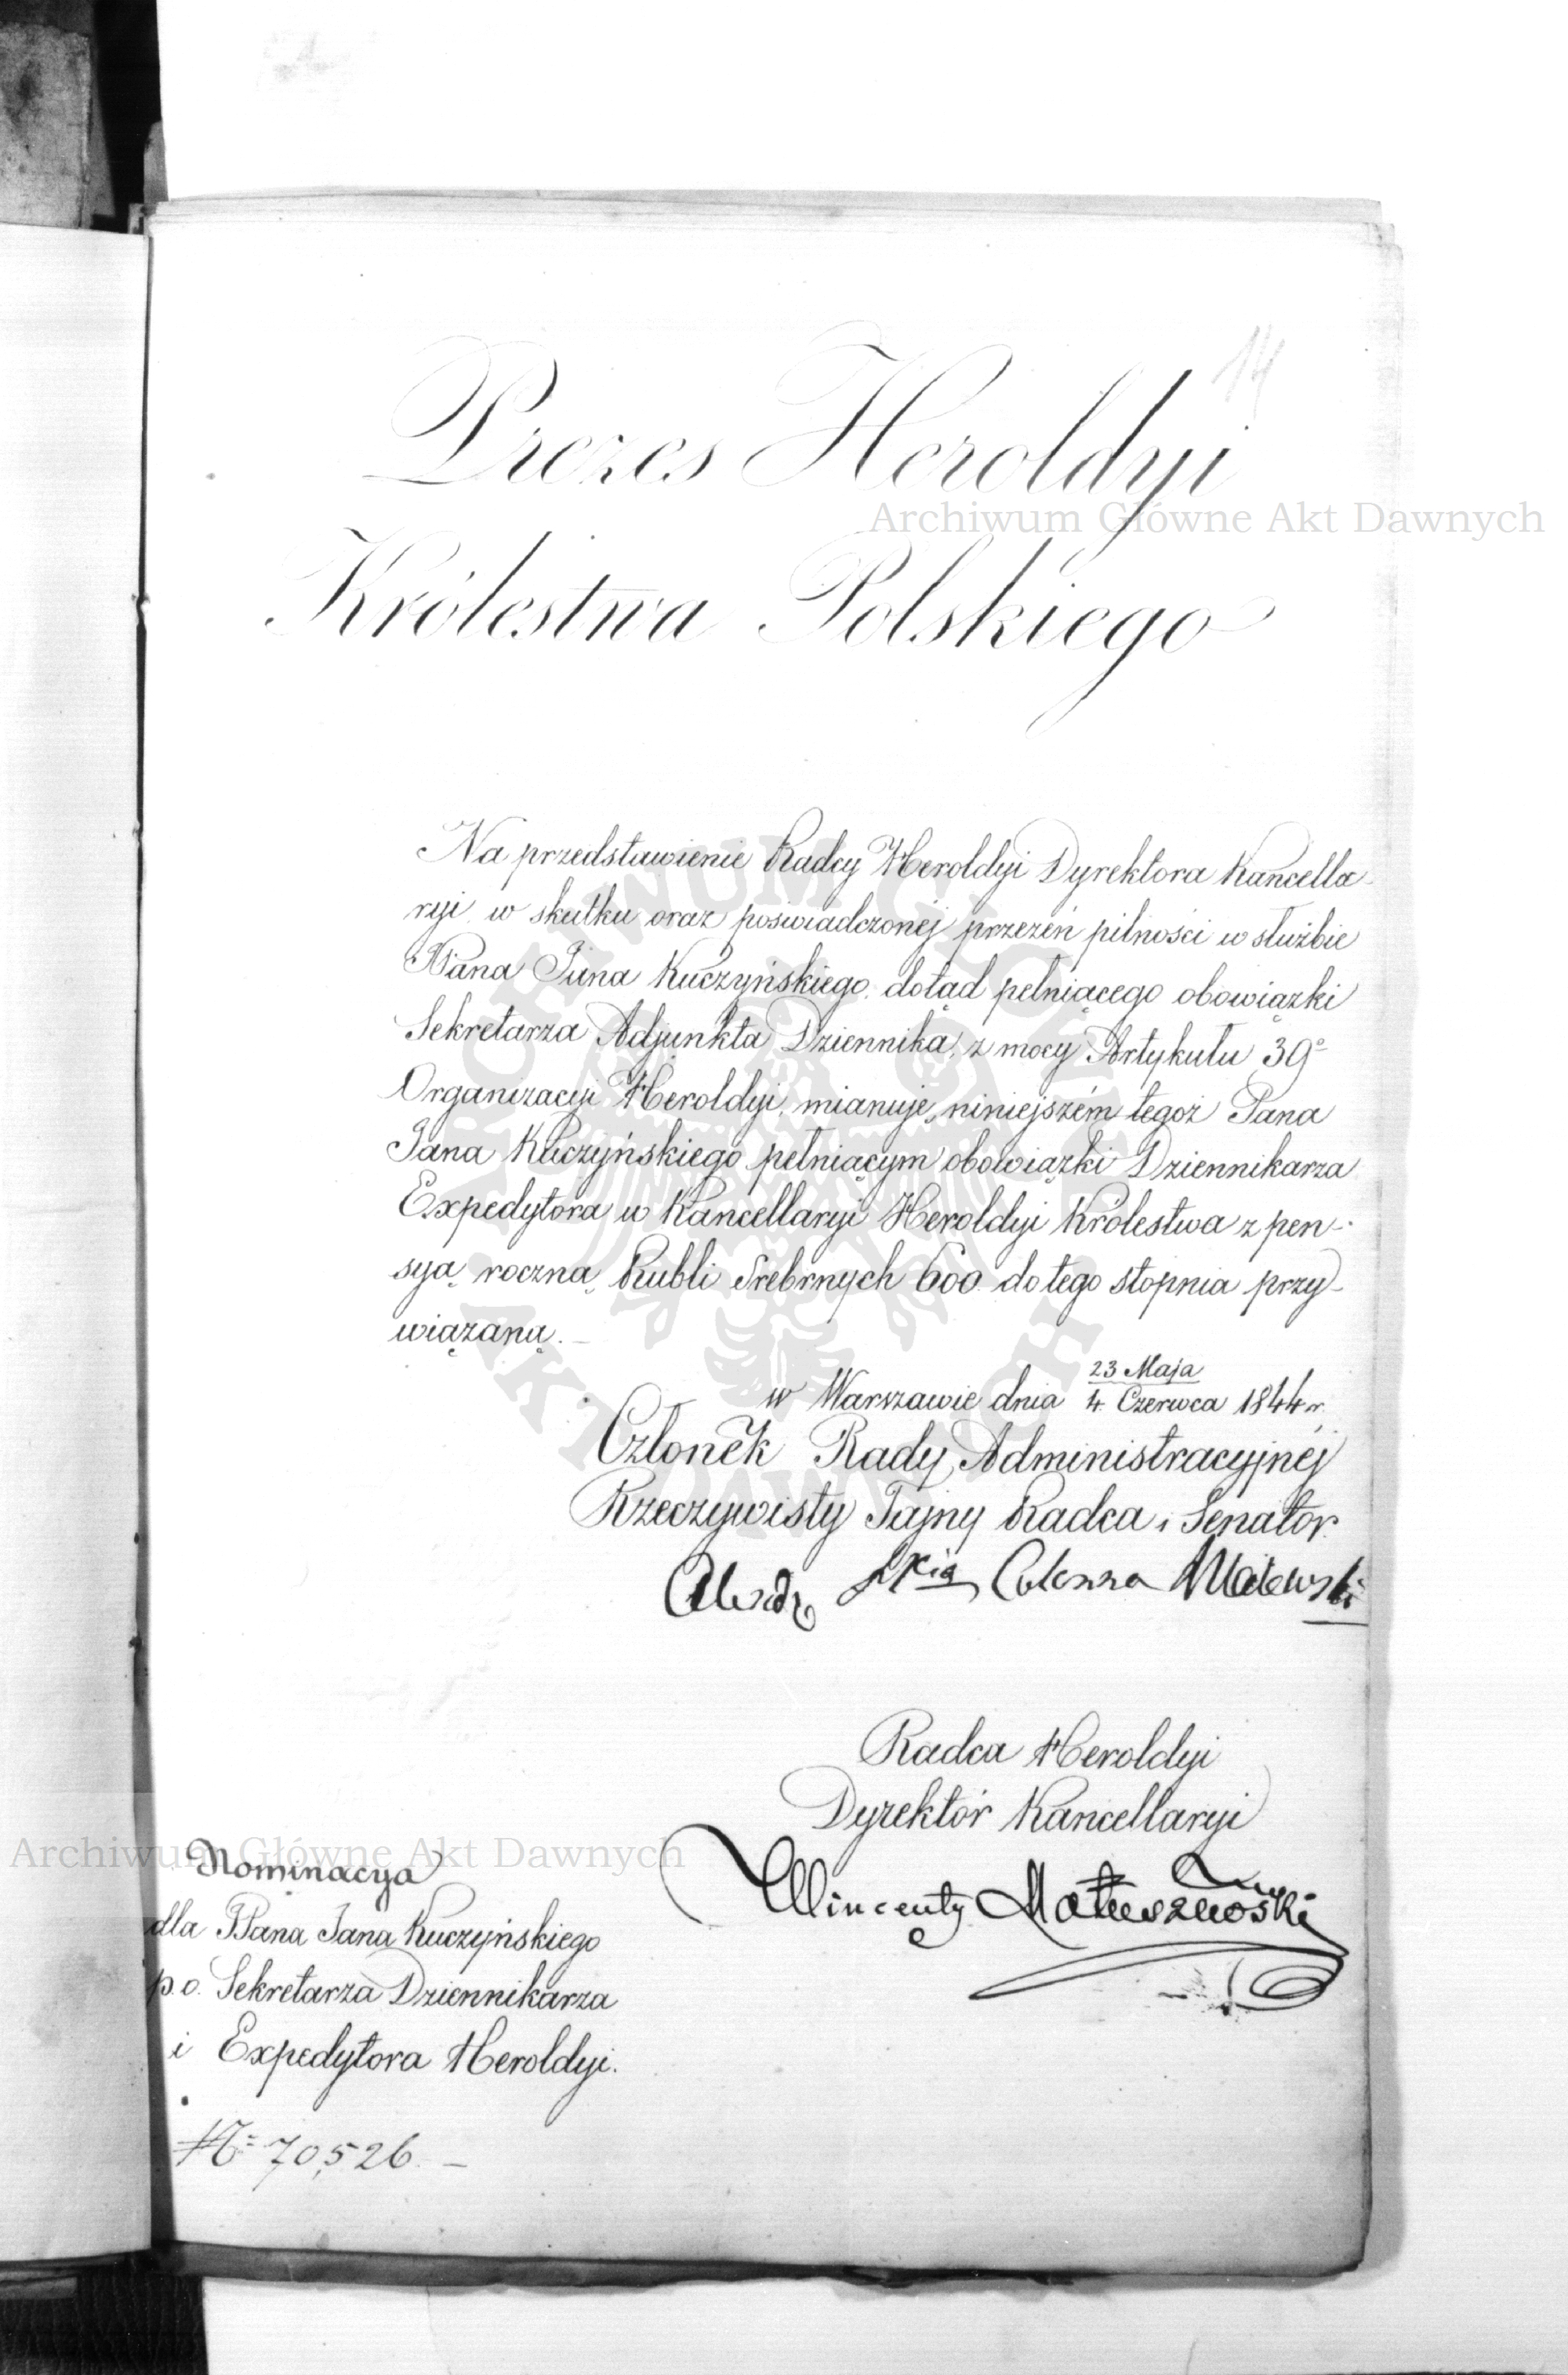 14
Prezes Heroldyi
Archiwum Główne Akt Dawnych
Królestwa Polskiego
Na przedstawienie Radcy Heroldyi Dyrektora Kancella-
ryi w skutku oraz poświadczonéj przezeń pilności w służbie
Pana Jana Kuczyńskiego dotąd pełniącego obowiązki
Sekretarza Adjunkta Dziennika, z mocy Artykułu 39º
Organizacyi Heroldyi, mianuje niniejszém tegoż Pana
Jana Kuczyńskiego pełniącym obowiązki Dziennikarza
Expedytora w Kancellaryi Heroldyi Królestwa z pen-
syą roczną Rubli Srebrnych 600 do tego stopnia przy-
wiązaną.
ARCHIWUM GŁÓWNE AKT DAWNYCH
w Warszawie dnia 23 Maja / 4 Czerwca 1844 r.
Członek Rady Administracyjnéj
Rzeczywisty Tajny Radca i Senator
Colonna
Radca Heroldyi
Dyrektór Kancellaryi
Wincenty Matuszewski
Archiwum Główne Akt Dawnych
Nominacya
dla Pana Jana Kuczyńskiego
p.o. Sekretarza Dziennikarza
i Expedytora Heroldyi.
Nº 70,526.